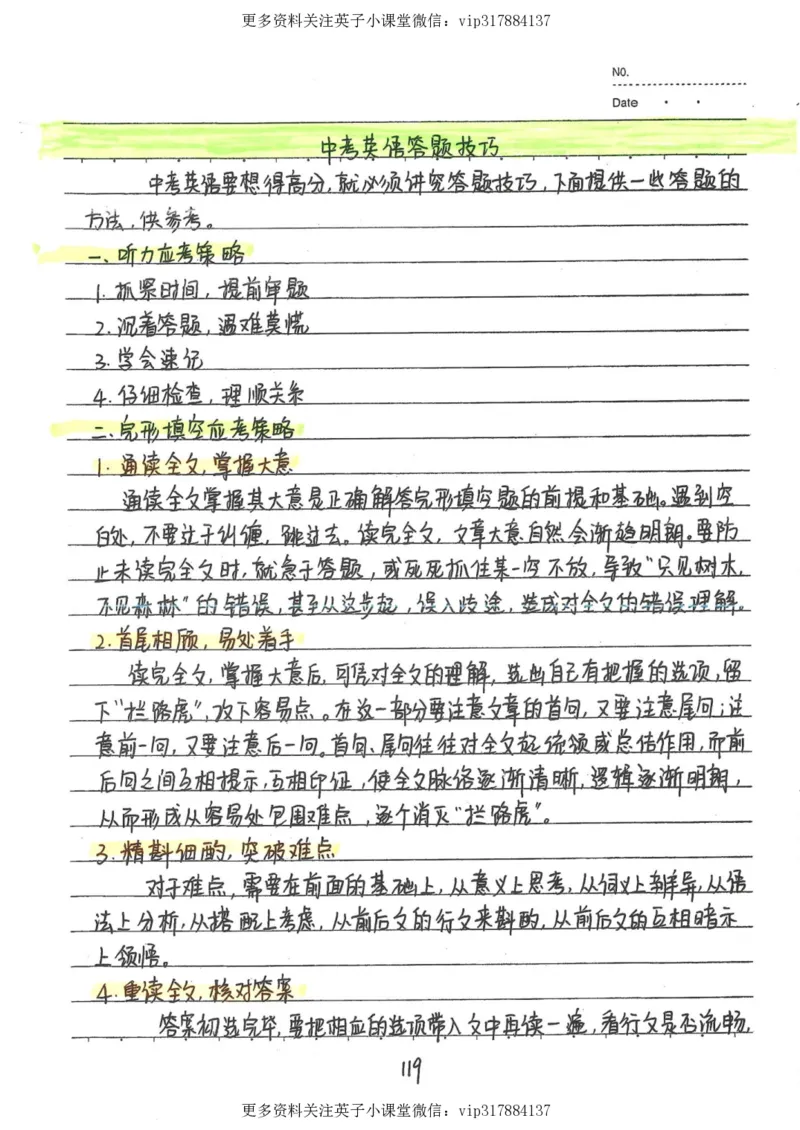 更多资料关注英子小课堂微信：vip317884137
NO.
Date
中考英语答题技巧
中考英语要想得高分,就必须讲究答题技巧,下面提供一些答题的
方法,供参考。
一、听力应考策略
1.抓紧时间，提前审题
2.沉着答题，遇难莫慌
3.学会速记
4.仔细检查，理顺关系
二、完形填空应考策略
1.通读全文,掌握大意
通读全文掌握其大意是正确解答完形填空题的前提和基础。遇到空
白处,不要过于纠缠，跳过去。读完全文，文章大意自然会渐趋明朗。要防
止未读完全文时,就急于答题，或死死抓住某一空不放,导致"只见树木,
不见森林"的错误,甚至从这步起，误入歧途，造成对全文的错误理解。
2.首尾相顾，易处着手
读完全文,掌握大意后,可凭对全文的理解，选出自己有把握的选项,留
下"拦路虎",攻下容易点。在这一部分要注意文章的首句，又要注意尾句;注
意前一句，又要注意后一句。首句、尾句往往对全文起统领或总结作用,而前
后句之间互相提示,互相印证，使全文脉络逐渐清晰,逻辑逐渐明朗，
从而形成从容易处包围难点，逐个消灭"拦路虎"。
3.精斟细酌,突破难点
对于难点，需要在前面的基础上,从意义上思考,从词义上辨异,从语
法上分析,从搭配上考虑，从前后文的行文来斟酌,从前后文的互相暗示
上领悟。
4.重读全文,核对答案
答案初选完毕,要把相应的选项带入文中再读一遍,看行文是否流畅,
119
更多资料关注英子小课堂微信：vip317884137